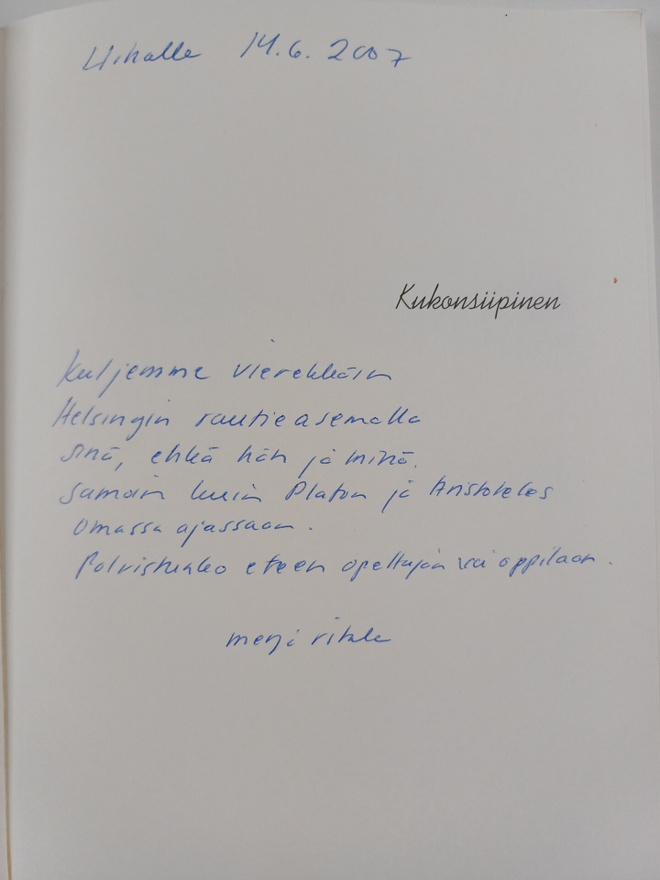 14.6.2007
Kukonsiipinen
Kuljemme vierekkäin
Helsingin rautieasemalla
sinä, ehkä hän ja minä.
samoin kuin Platon ja Aristoteles
omassa ajassaan.
Polvistunko eteen opettajan vai oppilaan.